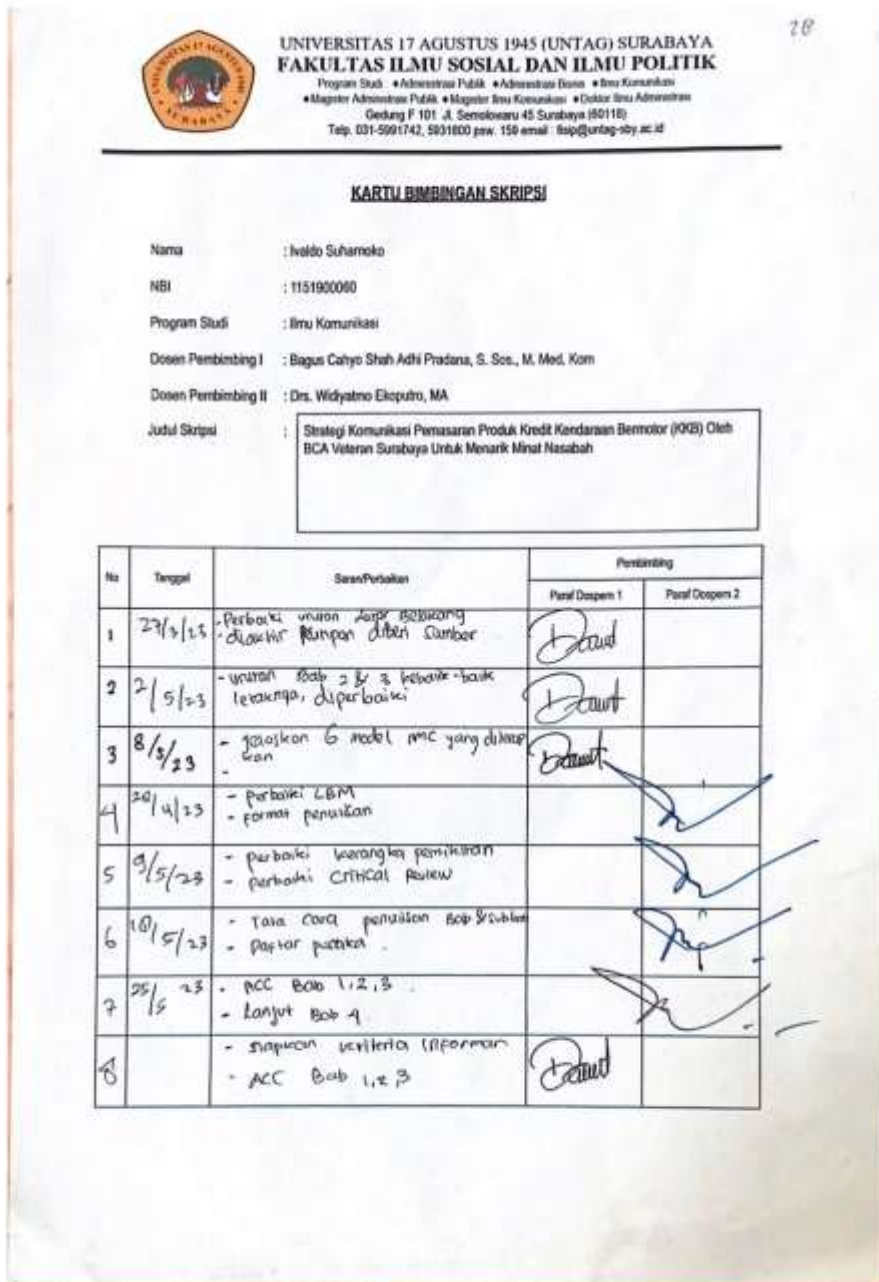 28
UNIVERSITAS 17 AGUSTUS 1945 (UNTAG) SURABAYA
FAKULTAS ILMU SOSIAL DAN ILMU POLITIK
Program Studi : ♦Administrasi Publik ♦Administrasi Bisnis ♦Ilmu Komunikasi
♦Magister Administrasi Publik ♦Magister Ilmu Komunikasi ♦Doktor Ilmu Administrasi
Gedung F 101 Jl. Semolowaru 45 Surabaya (60118)
Telp. 031-5991742, 5931800 psw. 159 email : fisip@untag-sby.ac.id
KARTU BIMBINGAN SKRIPSI
Nama : Ivaldo Suharnoko
NBI : 1151900060
Program Studi : Ilmu Komunikasi
Dosen Pembimbing I : Bagus Cahyo Shah Adhi Pradana, S. Sos., M. Med. Kom
Dosen Pembimbing II : Drs. Widiyatmo Ekoputro, MA
Judul Skripsi : Strategi Komunikasi Pemasaran Produk Kredit Kendaraan Bermotor (KKB) Oleh
BCA Veteran Surabaya Untuk Menarik Minat Nasabah
No Tanggal Saran/Perbaikan Pembimbing
Paraf Dospem 1 Paraf Dospem 2
1 27/3/23 - Perbaiki urutan Latar Belakang
- diakhir kutipan diberi Sumber
2 2/5/23 - urutan Bab 2 & 3
letaknya, diperbaiki
3 8/5/23 - jelaskan 6 model IMC yang diterap
kan
-
4 /4/23 - perbaiki LBM
- format penulisan
5 9/5/23 - perbaiki kerangka pemikiran
- perbaiki Critical Review
6 /5/23 - Tata Cara penulisan Bab & subbab
- Daftar pustaka
7 25/5 23 - ACC Bab 1,2,3
- Lanjut Bab 4
8 - siapkan kriteria informan
- ACC Bab 1,2,3